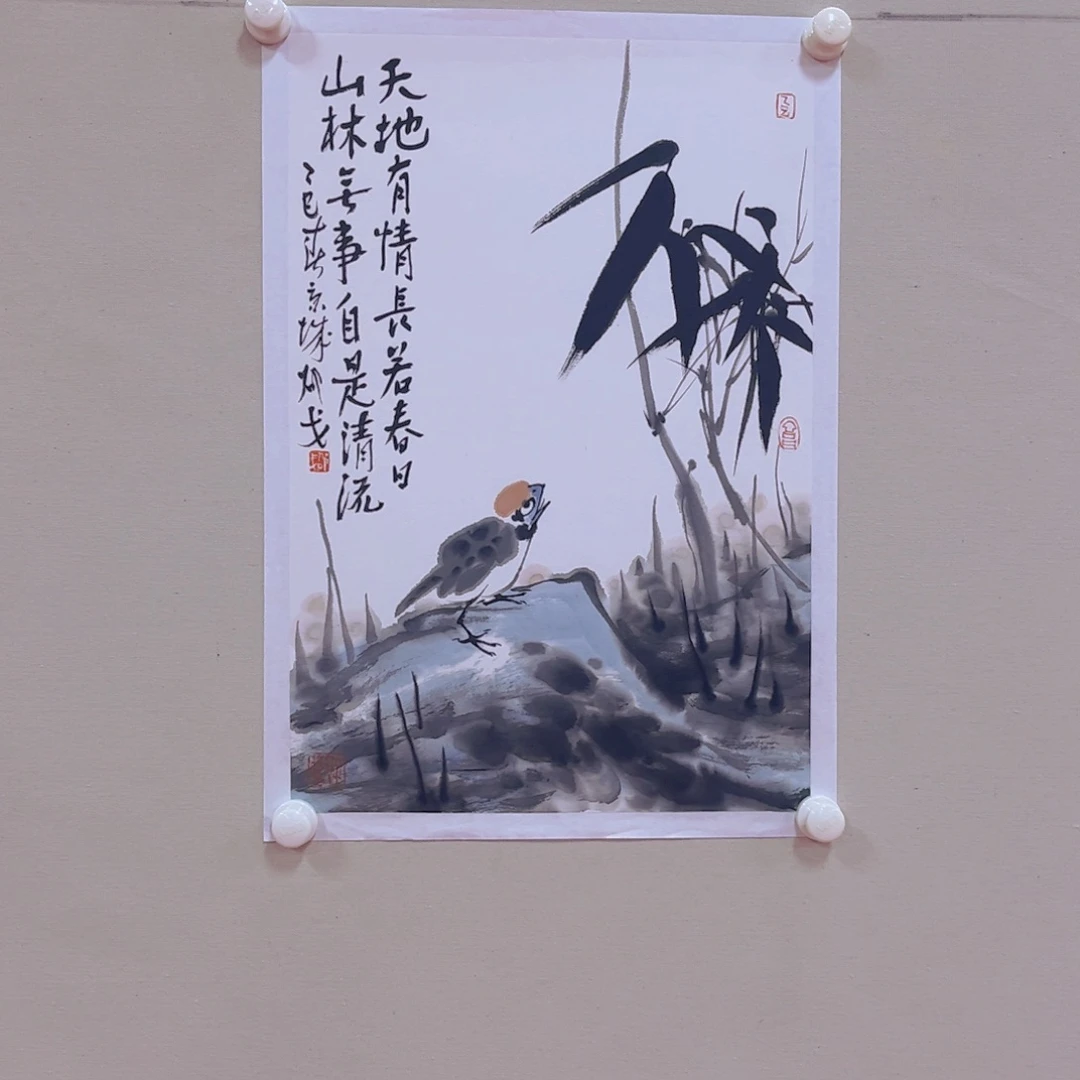 天地有情長若春日
山林無事自是清流
乙巳春京城